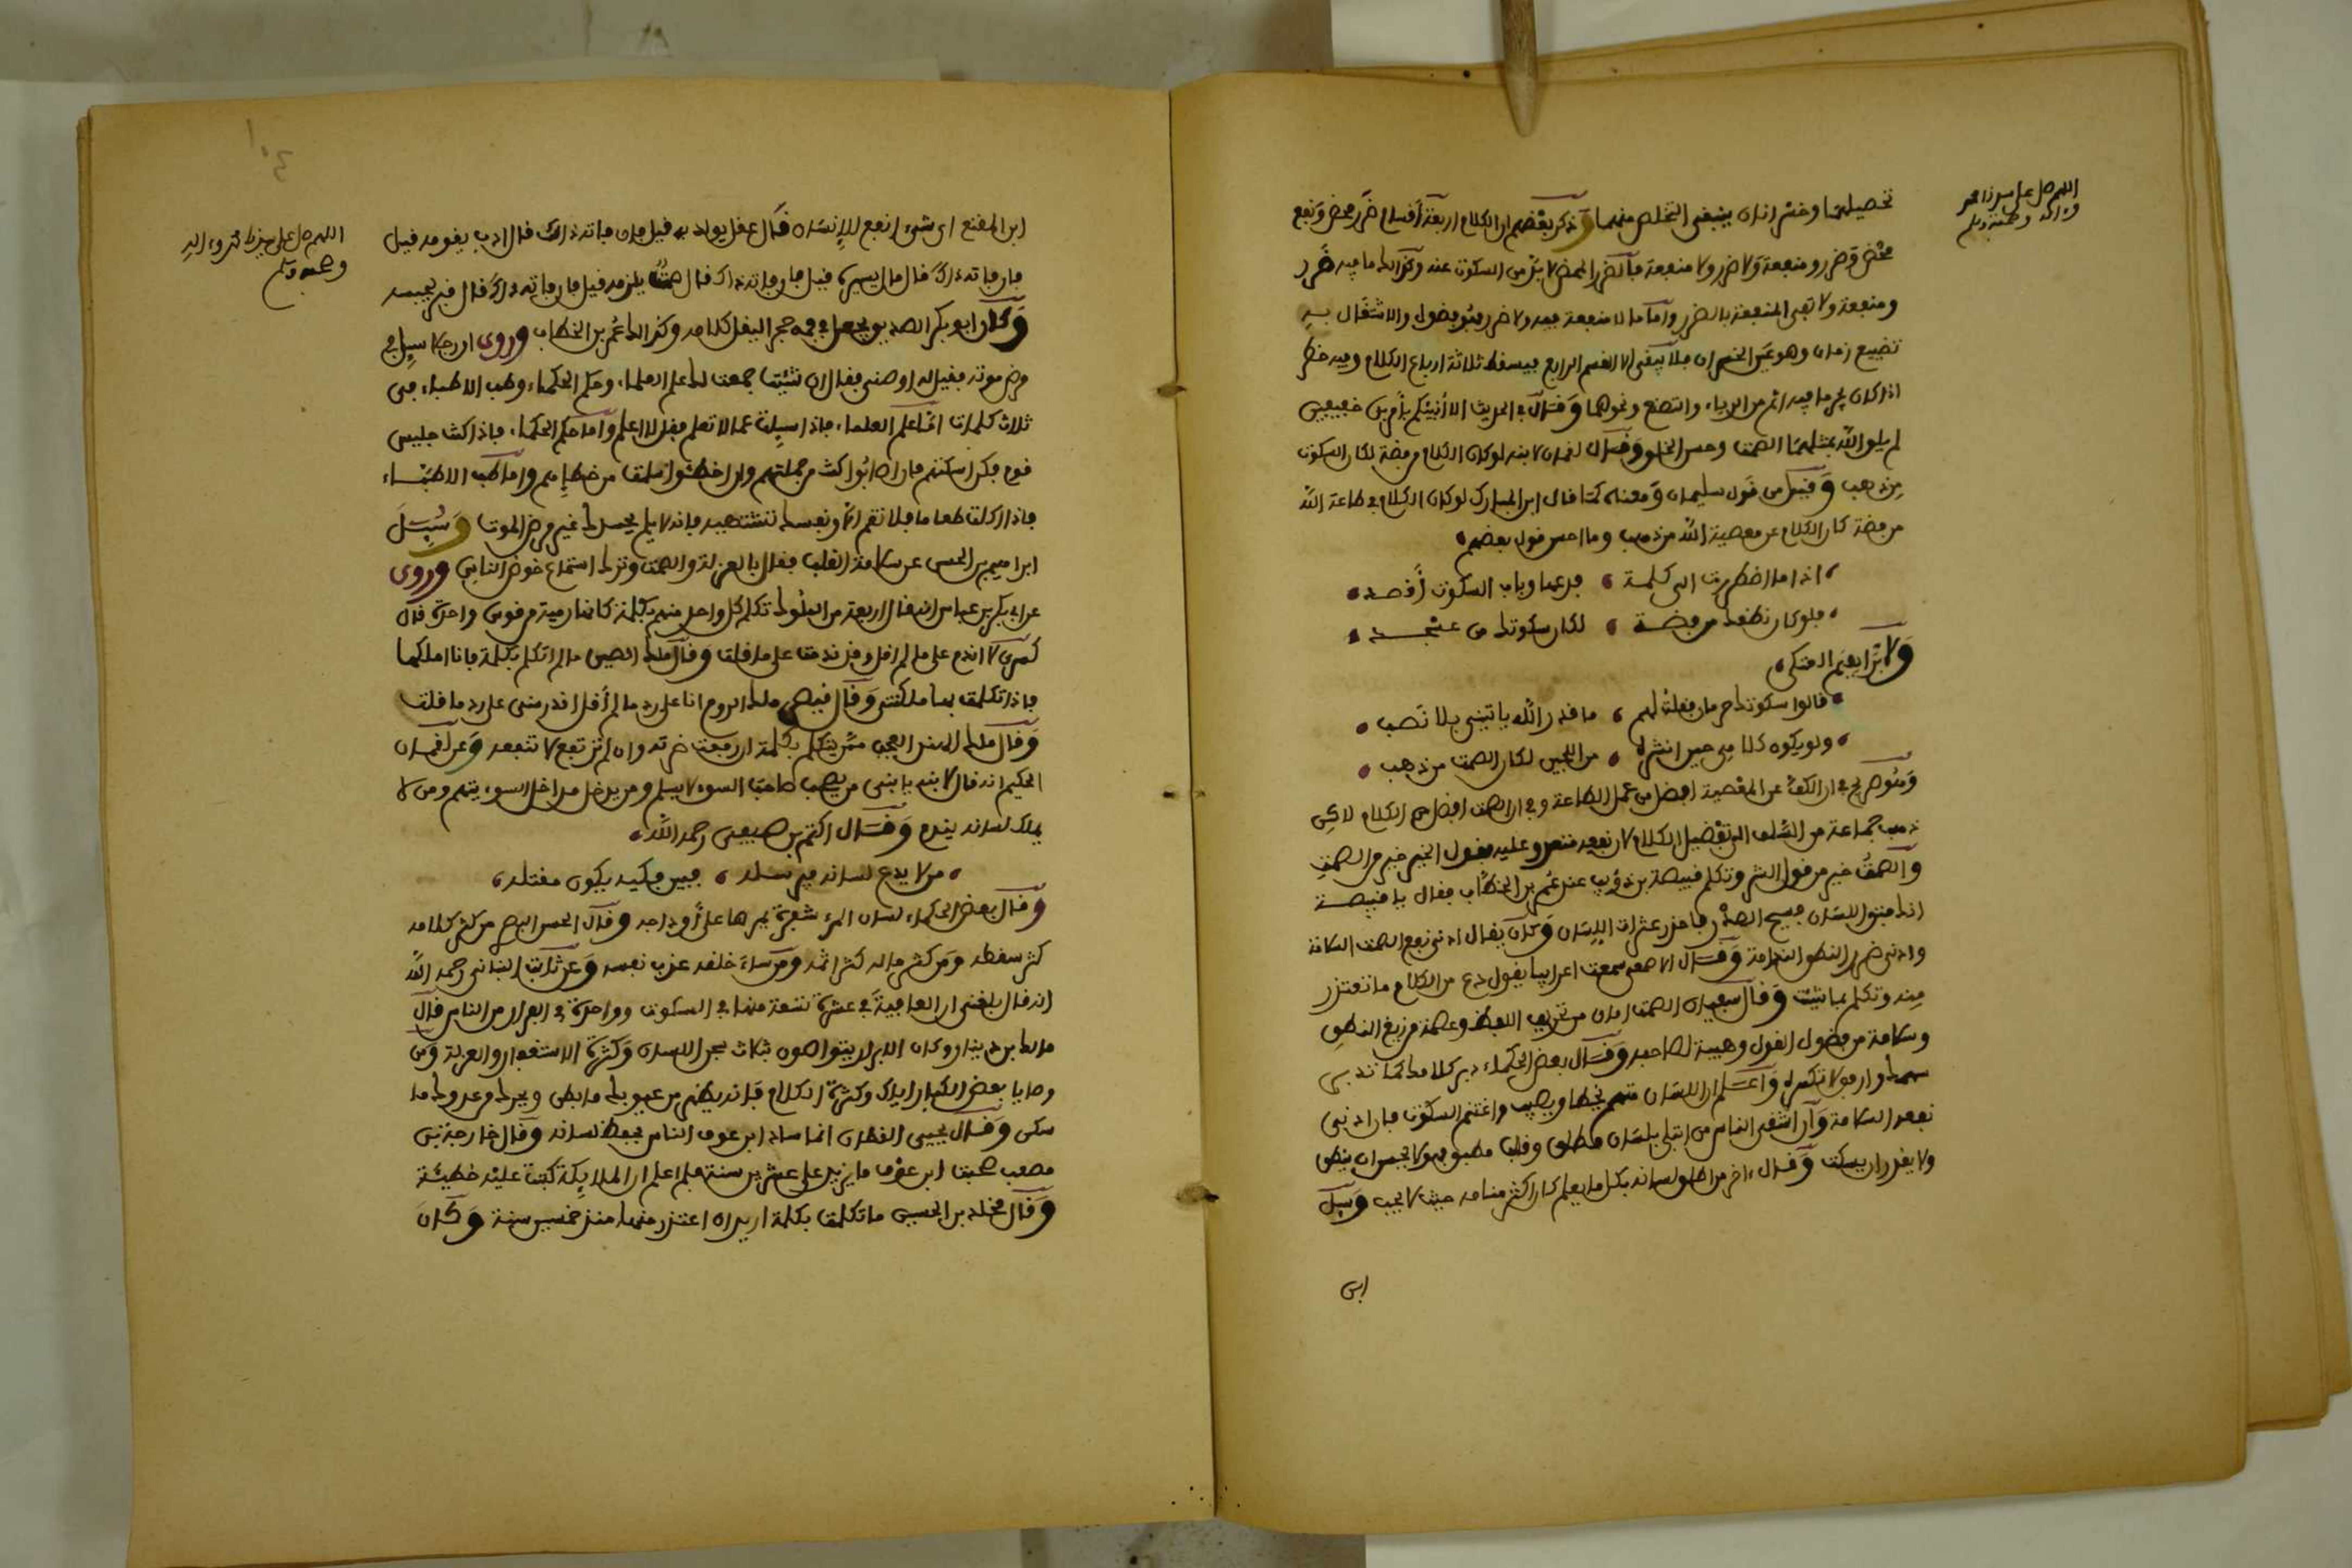 اللهم صل على سيدنا محمد
وءاله وصحبه وسلم
تحصيلهما وخسران ينبغي التخلص منهما وذكر بعضهم ان الكلام اربعة أقسام ضرر محض ونفع
محض وضرر ومنفعة ولا ضرر ولا منفعة فالضرر المحض لا بد من السكوت عنه وكذلك ما فيه ضرر
ومنفعة ولا تفي المنفعة بالضرر واما ما لا منفعة فيه ولا ضرر فهو فضول والاشتغال به
تضييع زمان وهو عين الخسران فلا يبقى الا القسم الرابع فيسقط ثلاثة ارباع الكلام وفيه خطر
اذا كان يجر ما فيه اثم من الرياء والتصنع ونحوهما وقال في الحديث الا أنبئكم بأمرين خفيفين
لم يلق الله بمثلهما الصمت وحسن الخلق وقال لقمان لابنه لو كان الكلام من فضة لكان السكوت
من ذهب وقيل من قول سليمان ومعناه كما قال ابن المبارك لو كان الكلام في طاعة الله
من فضة كان الكلام عن معصية الله من ذهب وما احسن قول بعضهم
اذا ما اضطررت الى كلمة فدعها وباب السكوت أقصد
فلو كان نطقك من فضة لكان سكوتك من عسجد
ولابراهيم المتكى
قالوا سكوتك حرمان فقلت لهم ما قدر الله ياتيني بلا نصب
ولو يكون كلامي حين انشره من اللجين لكان الصمت من ذهب
وهو صريح في ان الكف عن المعصية افضل من عمل الطاعة وفي ان الصمت افضل من الكلام لاكن
ذهب جماعة من السلف الى تفضيل الكلام لان نفعه متعد وعليه يقول الخير خير من الصمت
والصمت خير من قول الشر وتكلم قبيصة بن ذؤيب عند عمر بن الخطاب فقال يا قبيصة
انك فتيق اللسان فسيح الصدر فاحذر عثرات اللسان وكان يقال ادنى نفع الصمت السلامة
وادنى ضرر النطق الندامة وقال الاصمعي سمعت اعرابيا يقول دع من الكلام ما تعتذر
منه وتكلم بما شئت وقال سفيان الصمت امان من تحريف اللفظ وعصمة من زيغ النطق
وسلامة من فضول القول وهيبة لصاحبه وقال بعض الحكماء دبر كلامك كما تدبر
سهمك وارفق لا تكسره واعلم ان اللسان سهم يخطئ ويصيب واغتنم السكوت فان ادنى
نفعه السلامة وان اشقى الناس من ابتلي بلسان مطلق وقلب مطبق فهو لا يحسن ان ينطق
ولا يقدر ان يسكت وقال ءاخر من اطلق لسانه بكل ما يعلم كان اكثر مقامه حيث لا يحب وسيل
ابن
١٠٤
اللهم صل على سيدنا محمد وءاله
وصحبه وسلم
ابن المقفع اي شيء انفع للإنسان فقال عقل يولد به قيل فان فاته ذلك قال ادب يقومه قيل
فان فاته ذلك قال مال يستره قيل فان فاته ذلك قال صمت يلزمه قيل فان فاته ذلك قال قبر يحبسه
وكان ابو بكر الصديق يجعل في فمه حجر اليقل كلامه وكذلك عمر بن الخطاب وروى ان رجلا سيل في
مرض موته فقيل له اوصني فقال ان شئت جمعت لك علم العلماء وحكم الحكماء وطب الاطباء في
ثلاث كلمات اما علم العلماء فاذا سيلت عما لا تعلم فقل لا اعلم واما حكم الحكماء فاذا كنت جليس
قوم فكن اسكتهم فان اصابوا كنت من جملتهم وان اخطئوا سلمت من خطإهم واما طب الاطباء
فاذا اكلت طعاما فلا تقم الا ونفسك تشتهيه فانه لا يلم بجسدك غير مرض الموت وسئل
ابراهيم بن الحسن عن سلامة القلب فقال بالعزلة والصمت وترك استماع خوض الناس وروى
عن ابي بكر بن عياش انه قال اربعة من الملوك تكلم كل واحد منهم بكلمة كانها رمية من قوس واحدة قال
كسرى لا اندم على ما لم اقل وقد ندمت على ما قلت وقال ملك الصين ما لم اتكلم بكلمة فانا املكها
فاذا تكلمت بها ملكتني وقال قيصر ملك الروم انا على رد ما لم أقل اقدر مني على رد ما قلت
وقال ملك الهند العجب ممن يتكلم بكلمة ان رفعت ضرته وان لم ترفع لا تنفعه وعن لقمان
الحكيم انه قال لابنه يا بني من يصحب صاحب السوء لا يسلم ومن يدخل مداخل السوء يتهم ومن لا
يملك لسانه يندم وقال اكثم بن صيفي رحمه الله
من لا يدع لسانه يرسله فبين فكيه يكون مقتله
وقال بعض الحكماء لسان المرء شعرة يمرها على أوداجه وقال الحسن البصري من كثر كلامه
كثر سقطه ومن كثر ماله كثر اثمه ومن ساء خلقه عذب نفسه وعن ثابت البناني رحمه الله
انه قال بلغني ان العافية في عشرة تسعة منها في السكوت وواحدة في الفرار من الناس قال
مالك بن دينار وكان الابرار يتواصون بثلاث سجن اللسان وكثرة الاستغفار والعزلة ومن
وصايا بعض الكبار اياك وكثرة الكلام فانه يظهر من عيوبك ما بطن ويحرك من عدوك ما
سكن وقال يحيى القطان انما ساد ابن عوف الناس بحفظ لسانه وقال خارجة بن
مصعب صحبت ابن عوف ما يزيد على عشرين سنة فلم اعلم ان الملايكة كتبت عليه خطيئة
وقال مخلد بن الحسين ما تكلمت بكلمة اريد ان اعتذر منها منذ خمسين سنة وكان